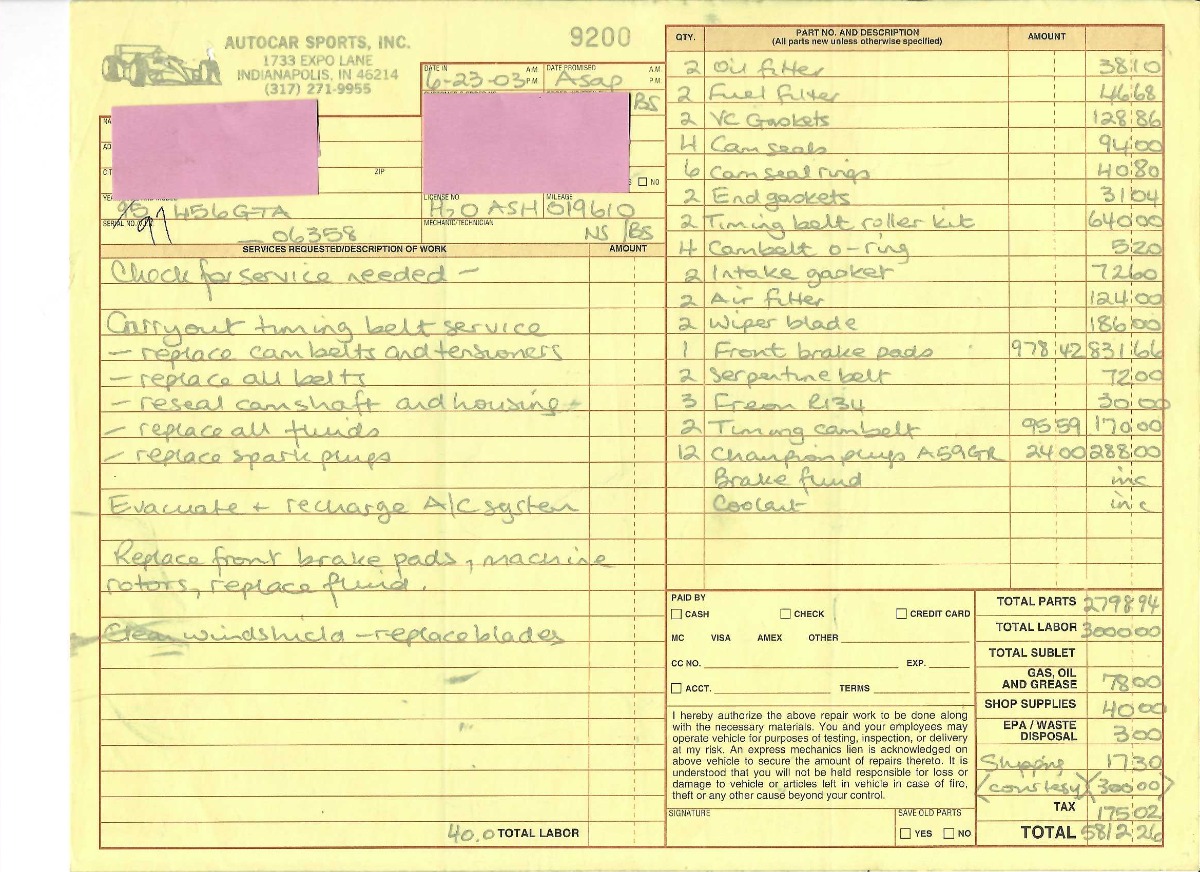 AUTOCAR SPORTS, INC.
1733 EXPO LANE
INDIANAPOLIS, IN 46214
(317) 271-9955
9200
DATE IN 6-23-03 A.M. P.M.
DATE PROMISED Asap A.M. P.M.
BS
ZIP
NO
95 97 456GTA
LICENSE NO. H2O ASH
MILEAGE 019610
SERIAL NO. 06358
MECHANIC/TECHNICIAN NS / BS
SERVICES REQUESTED/DESCRIPTION OF WORK AMOUNT
Check for service needed –
Carryout timing belt service
– replace cambelts and tensioners
– replace all belts
– reseal camshaft and housing
– replace all fluids
– replace spark plugs
Evacuate + recharge A/C system
Replace front brake pads, machine
rotors, replace fluid.
Clean windshield – replace blades
40.0 TOTAL LABOR
QTY. PART NO. AND DESCRIPTION AMOUNT
(All parts new unless otherwise specified)
2 Oil filter 38 10
2 Fuel Filter 46 68
2 VC Gaskets 128 86
4 Cam seals 94 00
6 Cam seal rings 40 80
2 End gaskets 31 04
2 Timing belt roller kit 640 00
4 Cambelt o-ring 5 20
2 Intake gasket 72 60
2 Air filter 124 00
2 Wiper blade 186 00
1 Front brake pads 978 42 831 66
2 Serpentine belt 72 00
3 Freon R134 30 00
2 Timing cambelt 95 59 170 00
12 Champion plugs A59GR 24 00 288 00
Brake fluid inc
Coolant inc
PAID BY
CASH CHECK CREDIT CARD
MC VISA AMEX OTHER
CC NO. EXP.
ACCT. TERMS
I hereby authorize the above repair work to be done along
with the necessary materials. You and your employees may
operate vehicle for purposes of testing, inspection, or delivery
at my risk. An express mechanics lien is acknowledged on
above vehicle to secure the amount of repairs thereto. It is
understood that you will not be held responsible for loss or
damage to vehicle or articles left in vehicle in case of fire,
theft or any other cause beyond your control.
SIGNATURE
SAVE OLD PARTS
YES NO
TOTAL PARTS 2798 94
TOTAL LABOR 3000 00
TOTAL SUBLET
GAS, OIL
AND GREASE 78 00
SHOP SUPPLIES 40 00
EPA / WASTE
DISPOSAL 3 00
Shipping 17 30
(courtesy) (300 00)
TAX 175 02
TOTAL 5812 26